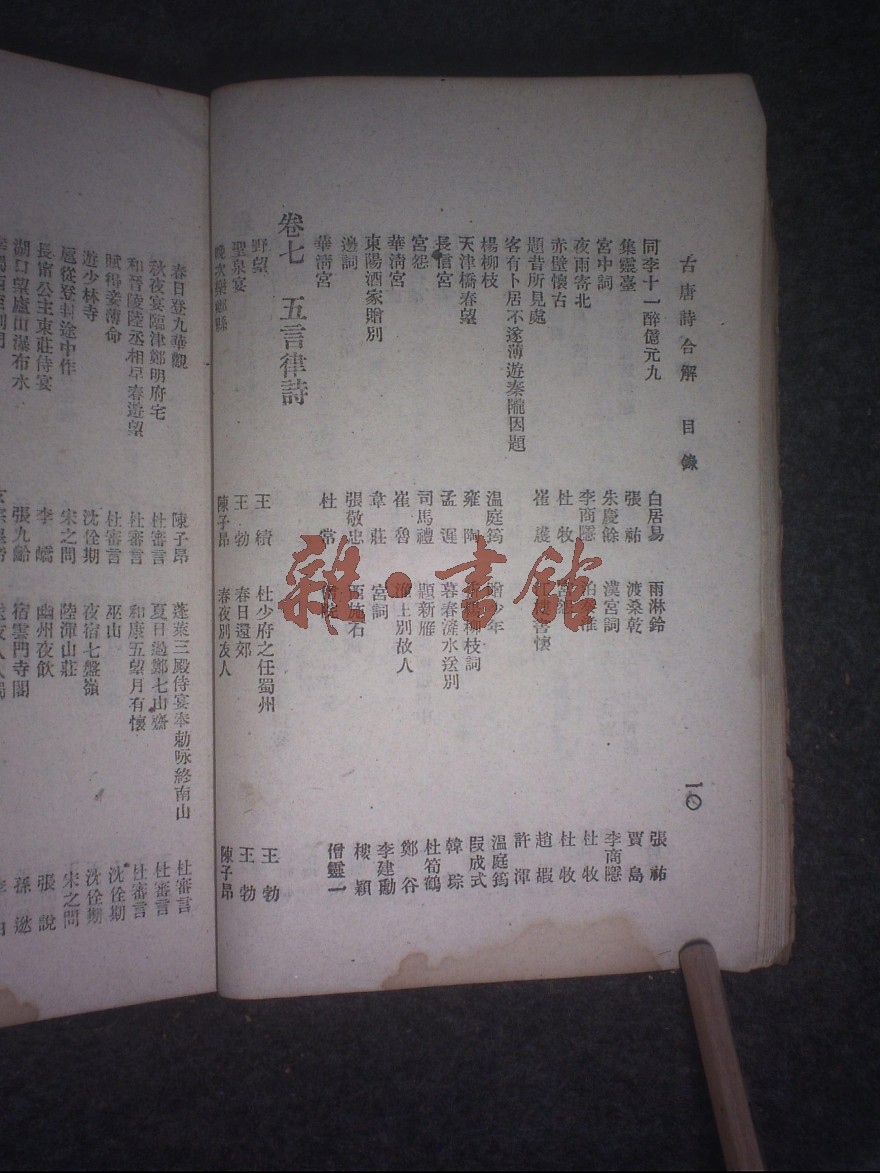 古唐詩合解 目錄
一〇
同李十一醉憶元九 白居易 雨淋鈴 張祜
集靈臺 張祜 渡桑乾 賈島
宮中詞 朱慶餘 漢宮詞 李商隱
夜雨寄北 李商隱 泊秦淮 杜牧
赤壁懷古 杜牧 宮怨 杜牧
題昔所見處 崔護 書懷 趙嘏
客有卜居不遂薄遊秦隴因題 許渾
楊柳枝 温庭筠 贈少年 温庭筠
天津橋春望 雍陶 柳枝詞 段成式
長信宮 孟遲 暮春滻水送別 韓琮
宮怨 司馬禮 題新雁 杜荀鶴
華清宮 崔魯 淮上別故人 鄭谷
東陽酒家贈別 韋莊 宮詞 李建勳
邊詞 張敬忠 西施石 樓穎
華清宮 杜常 僧院 僧靈一
卷七 五言律詩
野望 王績 杜少府之任蜀州 王勃
聖泉宴 王勃 春日還郊 王勃
晚次樂鄉縣 陳子昂 春夜別友人 陳子昂
春日登九華觀 陳子昂 蓬萊三殿侍宴奉勅咏終南山 杜審言
秋夜宴臨津鄭明府宅 杜審言 夏日過鄭七山齋 杜審言
和晉陵陸丞相早春遊望 杜審言 和康五望月有懷 杜審言
賦得妾薄命 杜審言 巫山 沈佺期
遊少林寺 沈佺期 夜宿七盤嶺 沈佺期
扈從登封途中作 宋之問 陸渾山莊 宋之問
長甯公主東莊侍宴 李嶠 幽州夜飲 張說
湖口望廬山瀑布水 張九齡 宿雲門寺閣 孫逖
雜·書館